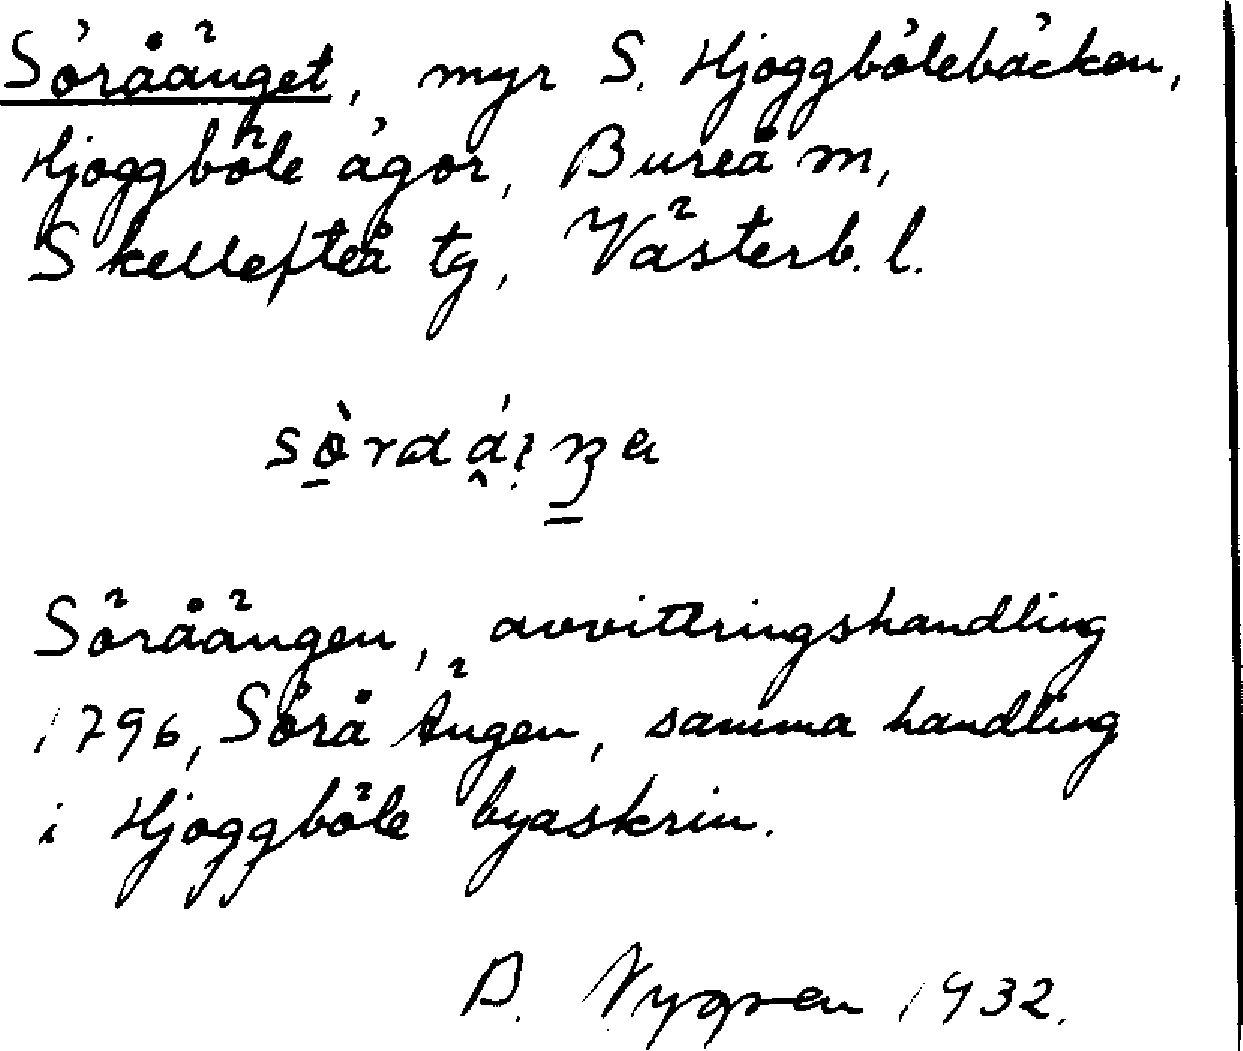 Söråänget, myr S. Hjoggbölebäcken,
Hjoggböle ägor, Bureå m,
Skellefteå tg, Västerb. l.
Söråängen, avvittringshandling
1796, Sörå Ängen, samma handling
i Hjoggböle byaskrin.
A. Nygren 1932.